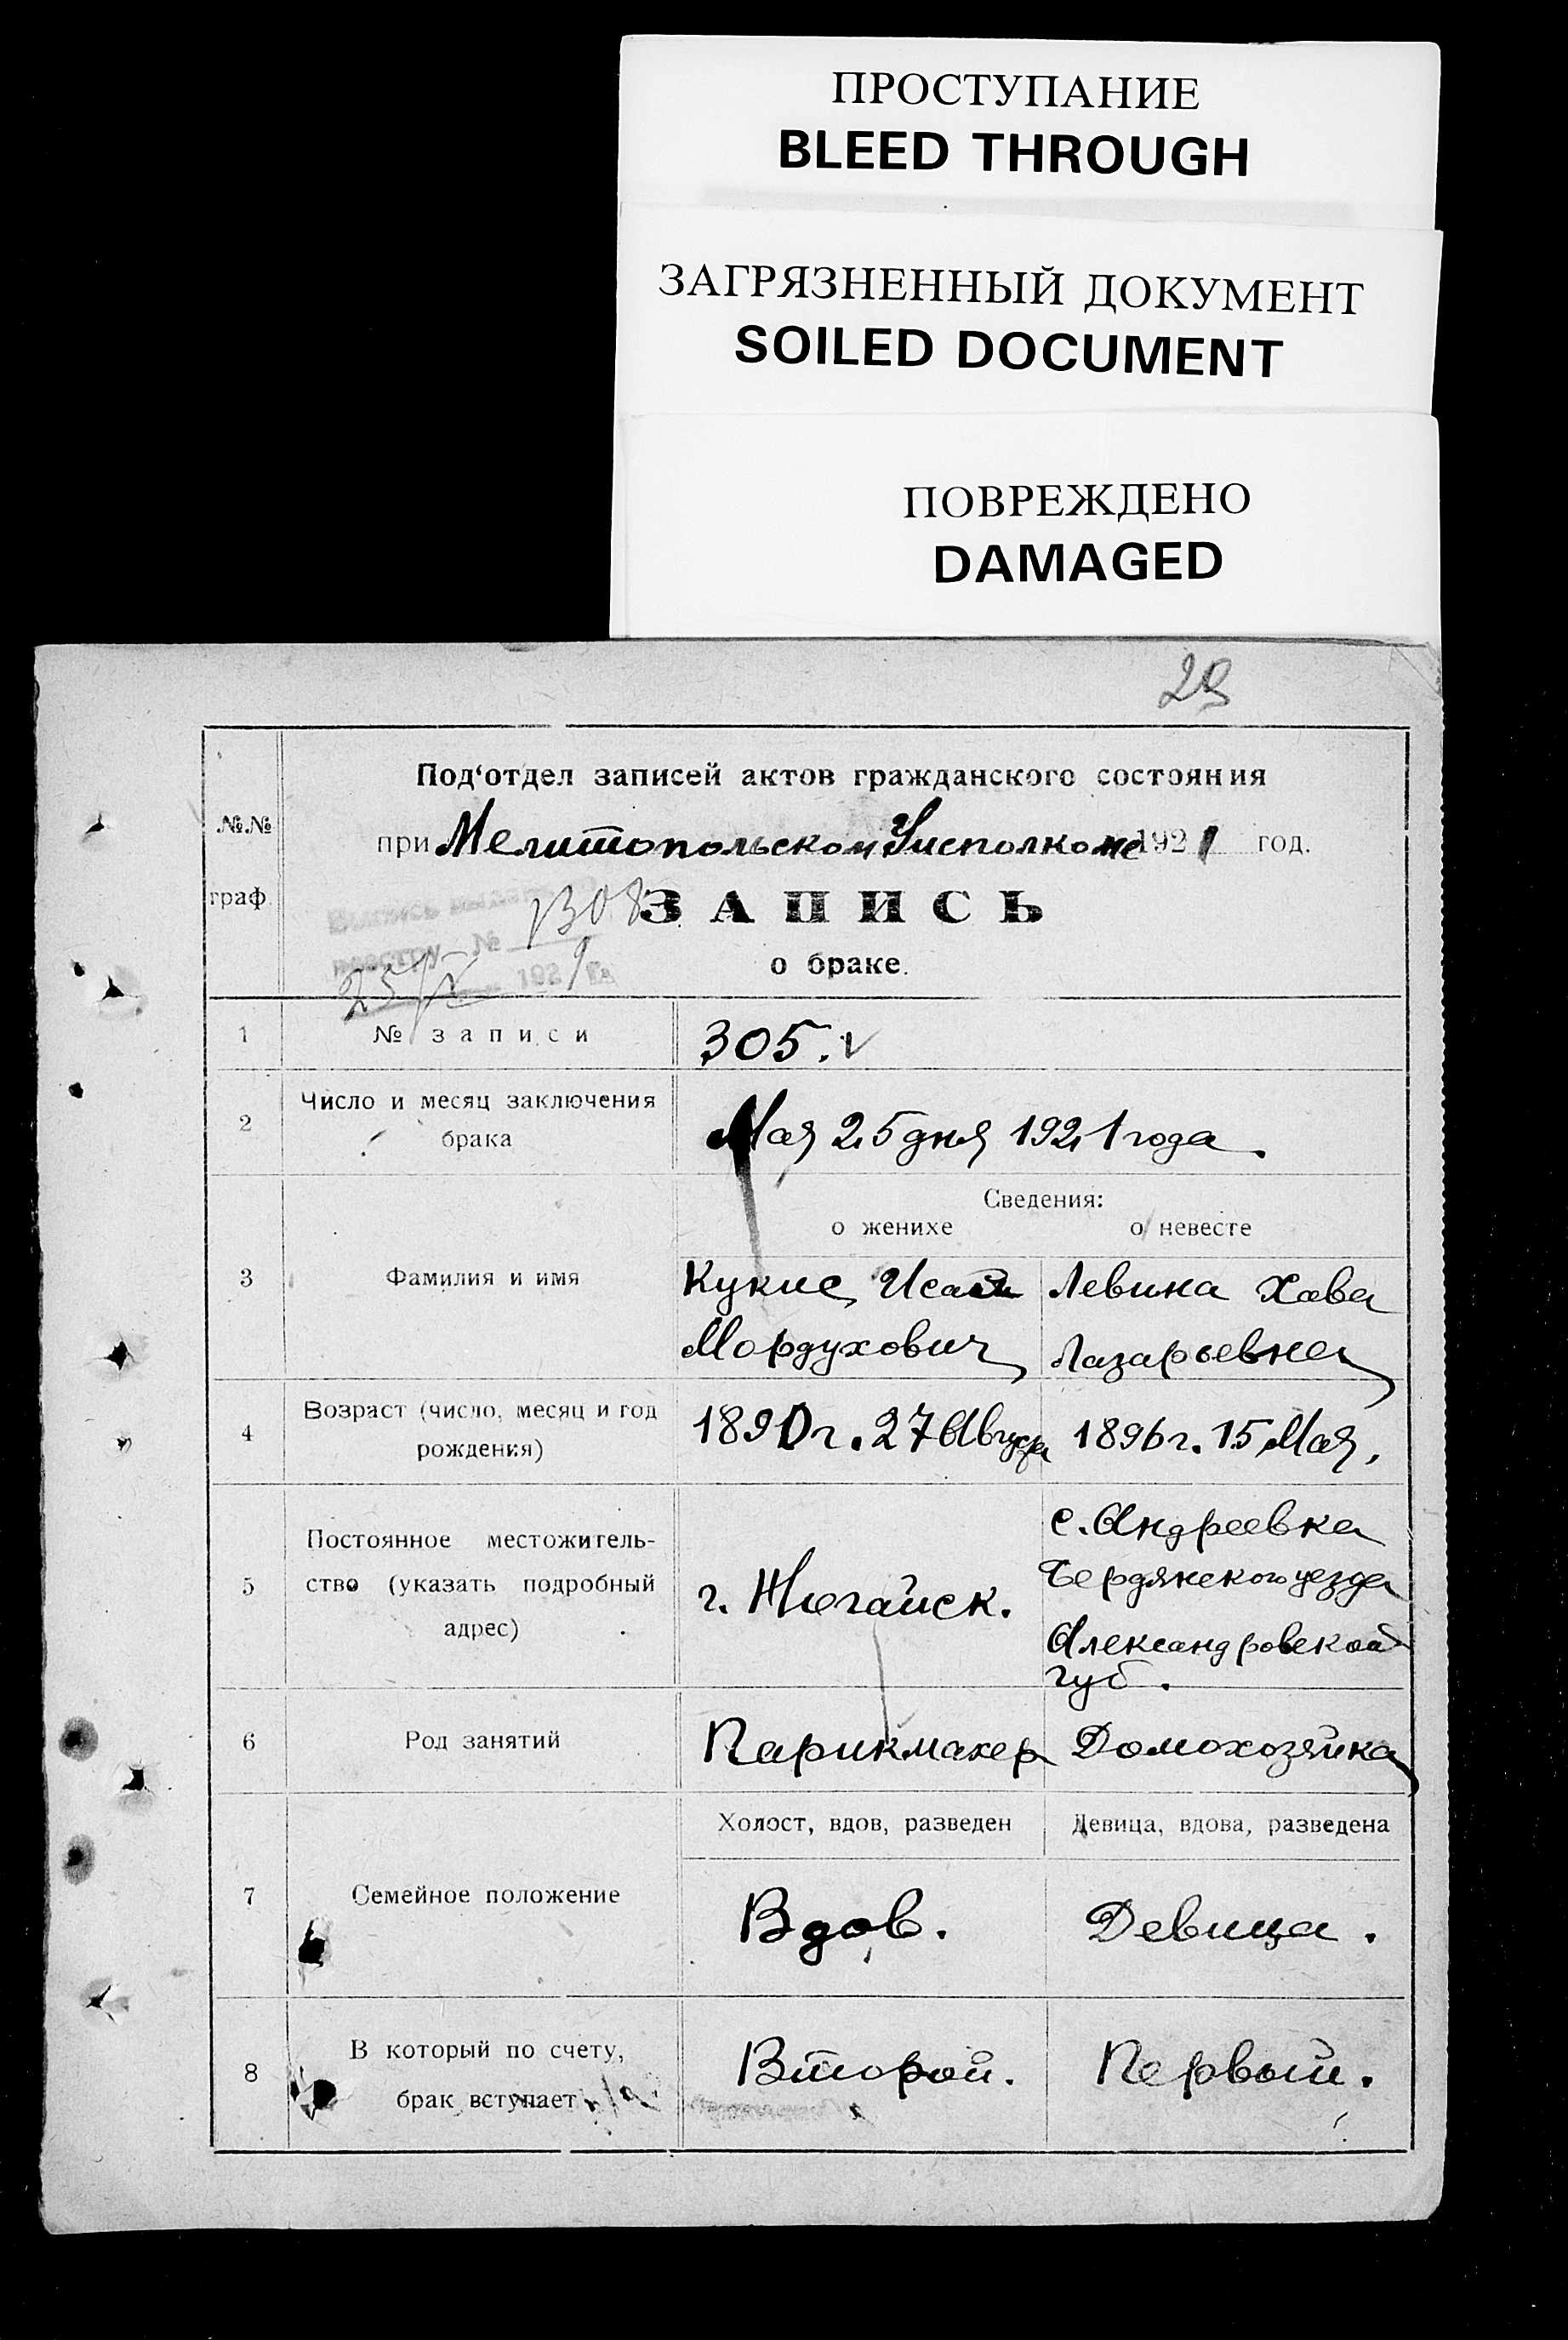 ПРОСТУПАНИЕ
BLEED THROUGH
ЗАГРЯЗНЕННЫЙ ДОКУМЕНТ
SOILED DOCUMENT
ПОВРЕЖДЕНО
DAMAGED
29
№№ граф.
Под‘отдел записей актов гражданского состояния
при Мелитопольском Уисполкоме 1921 год.
1308
ЗАПИСЬ
№
25/V 1921 Гя
о браке.
1 № записи 305.
2 Число и месяц заключения брака
Мая 25 дня 1921 года.
Сведения:
о женихе о невесте
3 Фамилия и имя
Кукис, Исаак Левина Хава
Мордухович Лазарьевна
4 Возраст (число, месяц и год рождения)
1890 г. 27 Августа 1896 г. 15 Мая.
5 Постоянное местожитель-
ство (указать подробный
адрес)
г. Ногайск.
с. Андреевка
Бердянского уезда
Александровской
губ.
6 Род занятий Парикмахер Домохозяйка
Холост, вдов, разведен Девица, вдова, разведена
7 Семейное положение Вдов. Девица.
8 В который по счету,
брак вступает
Второй. Первый.